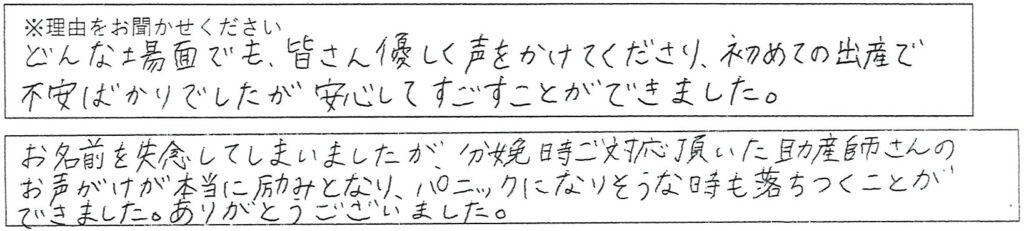 ※理由をお聞かせください
どんな場面でも、皆さん優しく声をかけてくださり、初めての出産で
不安ばかりでしたが安心してすごすことができました。
お名前を失念してしまいましたが、分娩時ご対応頂いた助産師さんの
お声がけが本当に励みとなり、パニックになりそうな時も落ちつくことが
できました。ありがとうございました。